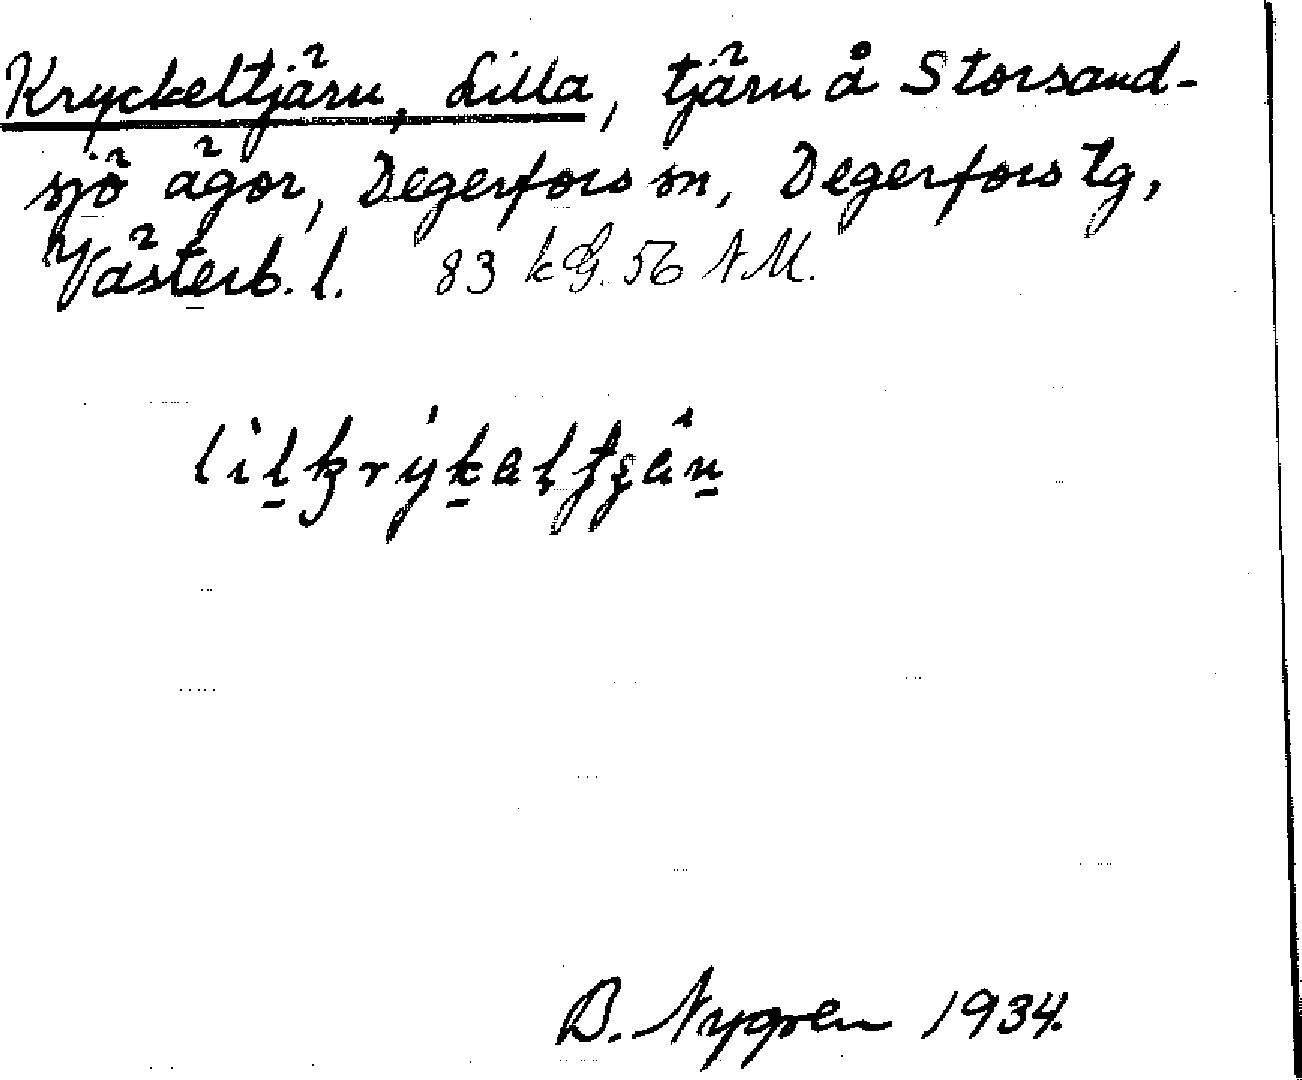 Kryckeltjärn, Lilla, tjärn å Storsand-
sjö ägor, Degerfors sn, Degerfors tg,
Västerb. l. 83 kG. 56 NM.
B. Nygren 1934.